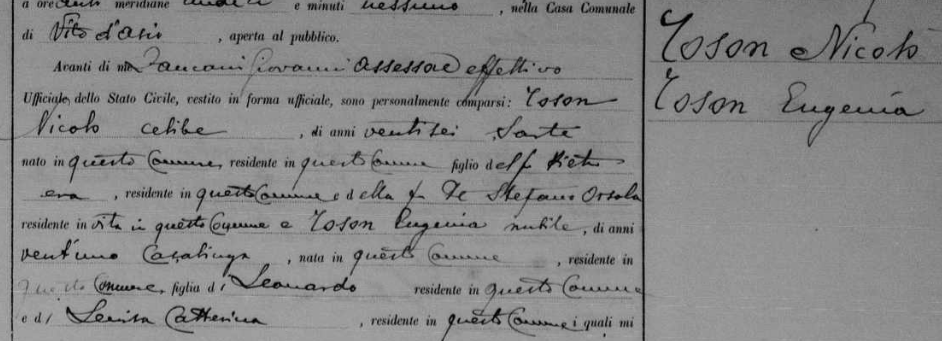 a ore meridiane e minuti nessuno , nella Casa Comunale
di Vito d'asio , aperta al pubblico.
Avanti di me Zancani Giovanni Assessore effettivo
Ufficiale dello Stato Civile, vestito in forma ufficiale, sono personalmente comparsi: Toson
Nicolò celibe , di anni ventisei Sarte
nato in questo Comune, residente in questo Comune figlio del fu Pietro
era , residente in questo Comune e della fu De Stefano Orsola
residente in vita in questo Comune e Toson Eugenia nubile , di anni
ventuno Casalinga , nata in questo Comune , residente in
questo Comune, figlia di Leonardo residente in questo Comune
e di Catterina , residente in questo Comune i quali mi
Toson Nicolò
Toson Eugenia